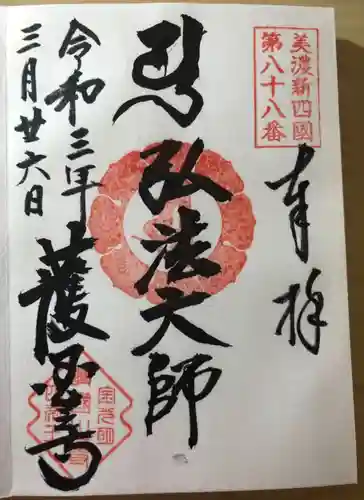 美濃新四國
第八十八番
奉拝
弘法大師
令和三年
三月廿六日
護国寺